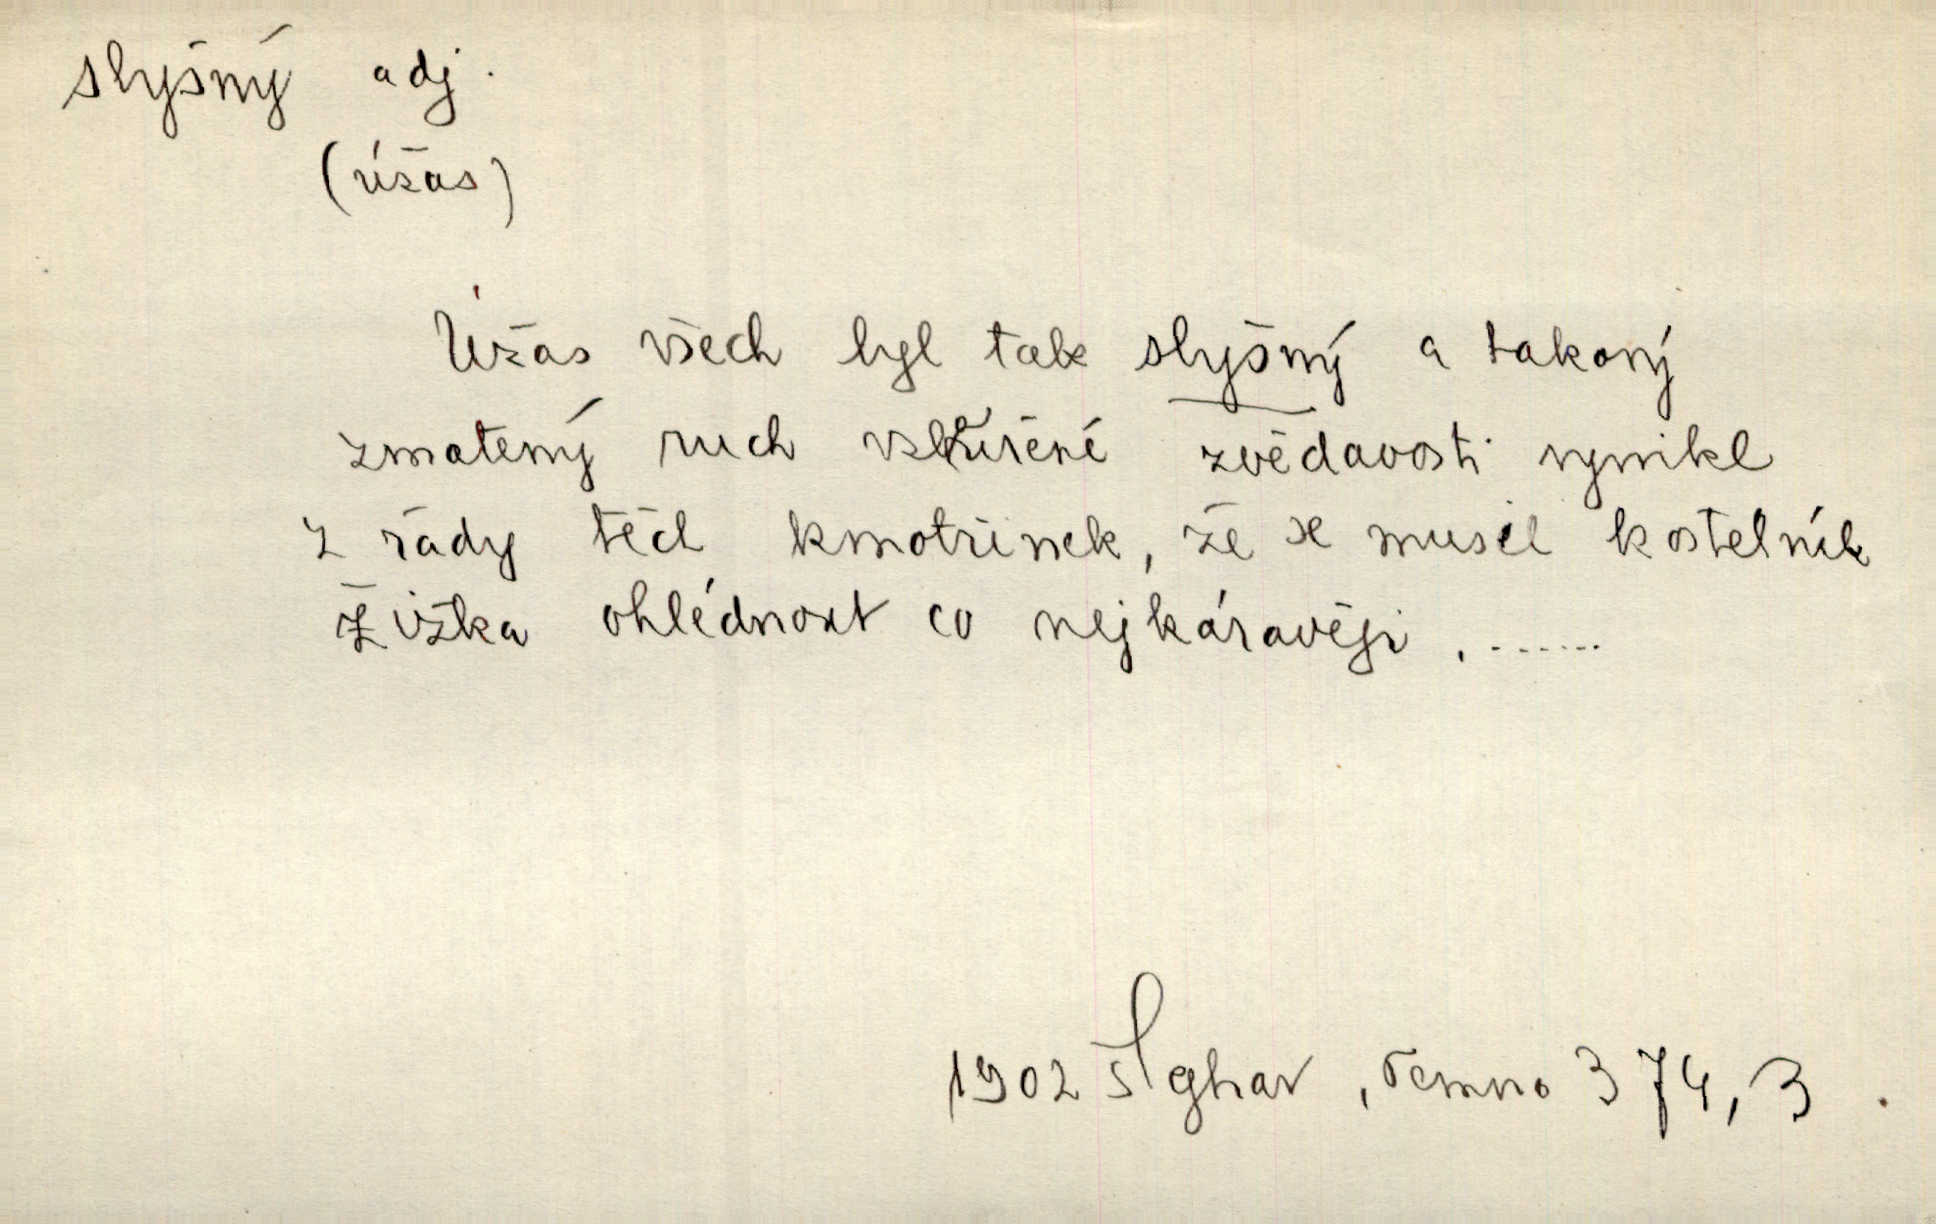 slyšný adj.
(úžas)
Úžas všech byl tak slyšný a takový
zmatený ruch vzbouřené zvědavosti vynikl
z řady těch kmotřinek, že se musil kostelník
Žižka ohlédnout co nejkáravěji, ......
1902 Šlghar, Temno 374, 3.